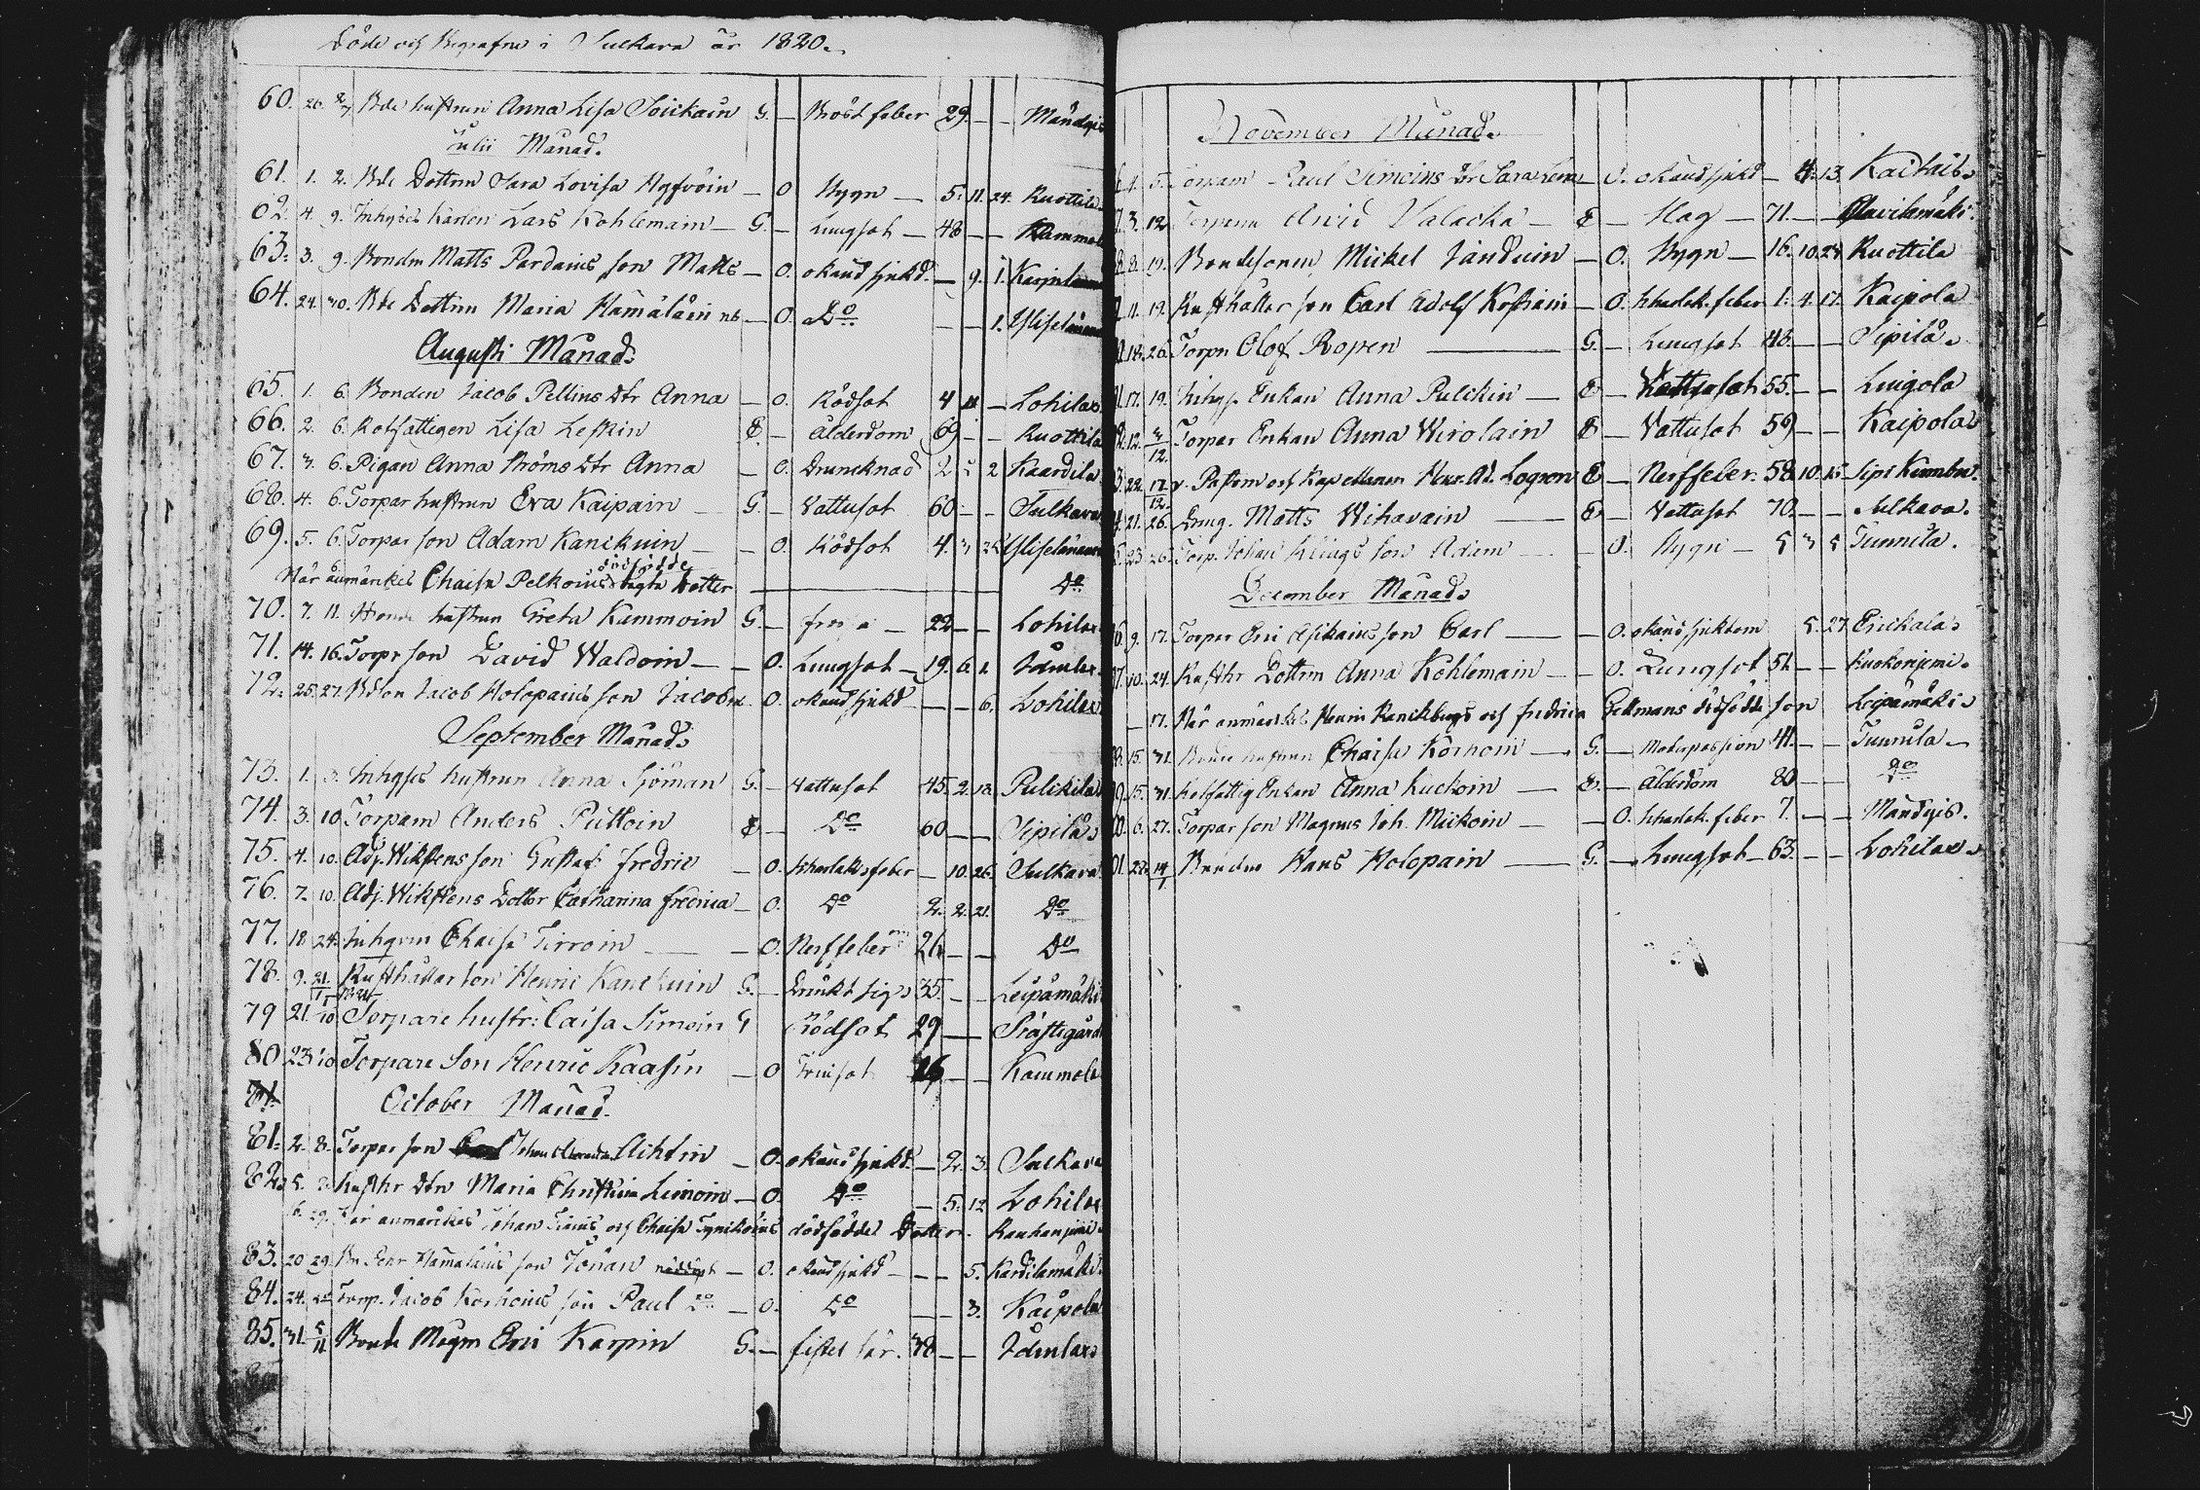 Döde och Begrafne i Sulkava år 1820.
60. 26. Bde hustrun Anna Lisa Toickain G. — Bröst feber 29. — — Mändyis
Julii Månad.
61. 1. 2. Bde Dottren Sara Lovisa — O Hygn — 5. 11. 24. Ruottila
62. 4. 9. Inhyses Karlen Lars Kohlemain — G. — Lungsot — 48 — — Kammola
63. 3. 9. Bonden Matts Pardains son Matts — O. okänd sjukd. — 9. 1.
64. 24. 30. Bde Dottren Maria Hämäläin — O. Do — — 1.
Augusti Månad.
65. 1. 6. Bonden Jacob Pellins dtr Anna — O. Rödsot 4 11 — Lohilax
66. 2. 6. Rotfattigen Lisa Leskin E. — Ålderdom 69 — — Ruottila
67. 3. 6. Pigan Anna Ströms dtr Anna — O. Druncknad 2 5 2 Kaardila
68. 4. 6. Torpar hustrun Eva Kaipain — G. — Vattusot 60 — — Sulkava
69. 5. 6. Torpar son Adam Kanckuin — — O. Rödsot 4. 3
När anmärkes Chaisa Pelkoins dödfödde Dotter — Do
70. 7. 11. Bonde hustrun Greta Kammoin G. — — 22 — — Lohilax
71. 14. 16. Torpr son David Waldoin — — O. Lungsot — 19. 6. 2
72. 25. 27. Bdson Jacob Holopains son Jacob O. okänd sjukd — — 6. Lohilax
September Månad.
73. 1. 3. Inhyses hustrun Anna Sjöman G. — Vattusot 45. 2. 12. Pulckila
74. 3. 10 Torparn Anders Puttoin E — Do 60 — — Sipilä
75. 4. 10. Adj. Wikstens son Gustaf Fredric — O. Scharlaksfeber — 10. 26. Sulkava
76. 7. 10. Adj. Wikstens Dotter Catharina Fredrica — O. Do 2. 2. 21. Do
77. 18 24. Inhysn Chaisa Tirroin — — O. Nerffeber 26 — — Do
78. 9. 21. Rusthållar son Henric G. — Dränkt sig 35. — — Leipämäki
79 21. 10 Torpare hustr: Caisa Simoin G Rödsot 29 — — Prästegård
80 23 10 Torpare Son Henric Kaasin — O 26 — — Kammola
81
October Månad.
81. 2. 8. Torpar son Ahtin — O. okänd sjukd. — 2. 3. Sulkava
82. 5. 8. Rusthr dtr Maria Christina Limoin — O. Do — 5. 12 Lohilax
6. 29. När anmärkes Johan och Chaisa dödfödde Dotter. Rauhanjemi.
83. 20 29. Bn Hämäläins son Johan nöddöpt — O. okänd sjukd — — 5. Kardilamäki
84. 24. Torp. Jacob Korhoins son Paul Do — O. Do — — 3. Kaipola
85. 31. 5/11 Bonde Mågen Eric Karpin G. — fistel sår. 48 — — Idenlax
November Månad.
1. 5. Torparn Paul Simoins dtr Sara Lena — O. okänd sjukd — 4. 13. Kaitais
3. 12. Torparn Arvid Valacka — E — Slag — 71. — — Clavilamäki
8. 19. Bondesonen Mickel Janduin — O. Hygn — 16. 10. 28 Ruottila
11. 19. Rusthållar son Carl Adolf Kossain — O. Scharlak. feber 1. 4. 17. Kaipola
18. 26. Torpn Olof Ropen — G. — Lungsot 48. — — Sipilä
17. 19. Inhys. Enkan Anna Pulckin — E — Vattusot 55. — — Lingola
12. 3/12. Torpar Enkan Anna Wirolain E — Vattusot 59 — — Kaipola
22. 17/12. v. Pastorn och Kapellanen Henr. Ad. Logren E — Nerffeber. 58. 10. 15
21. 26. Matts Wihavain — E — Vattusot 70. — — Sulkava.
23. 26. Torp. Johan Klings son Adam — — O. Hygn — 5 3 5 Tunnila.
December Månad
9. 17. Torpar Eric Asikains son Carl — — O. okänd sjukdom 5. 27 Erickala
10. 24. Rusthr Dottren Anna Kohlemain — — O. Lungsot 51. — — Ruokonjemi
— 17. När anmärkes Henric och Fredrica Gellmans dödfödde son Leipämäki
15. 31. Bonde hustrun Chaisa Korhoin — G. — Moderpassion 41. — — Tunnila
15. 31. Rotfattig Enkan Anna Kuckoin — E. — Ålderdom 80 — — Do
6. 27. Torpar son Magnus Joh. Mickoin — — O. Scharlak. feber 7. — — Mändyis.
28. 14/1 Bonden Hans Holopain — G. — Lungsot — 63. — — Lohilax